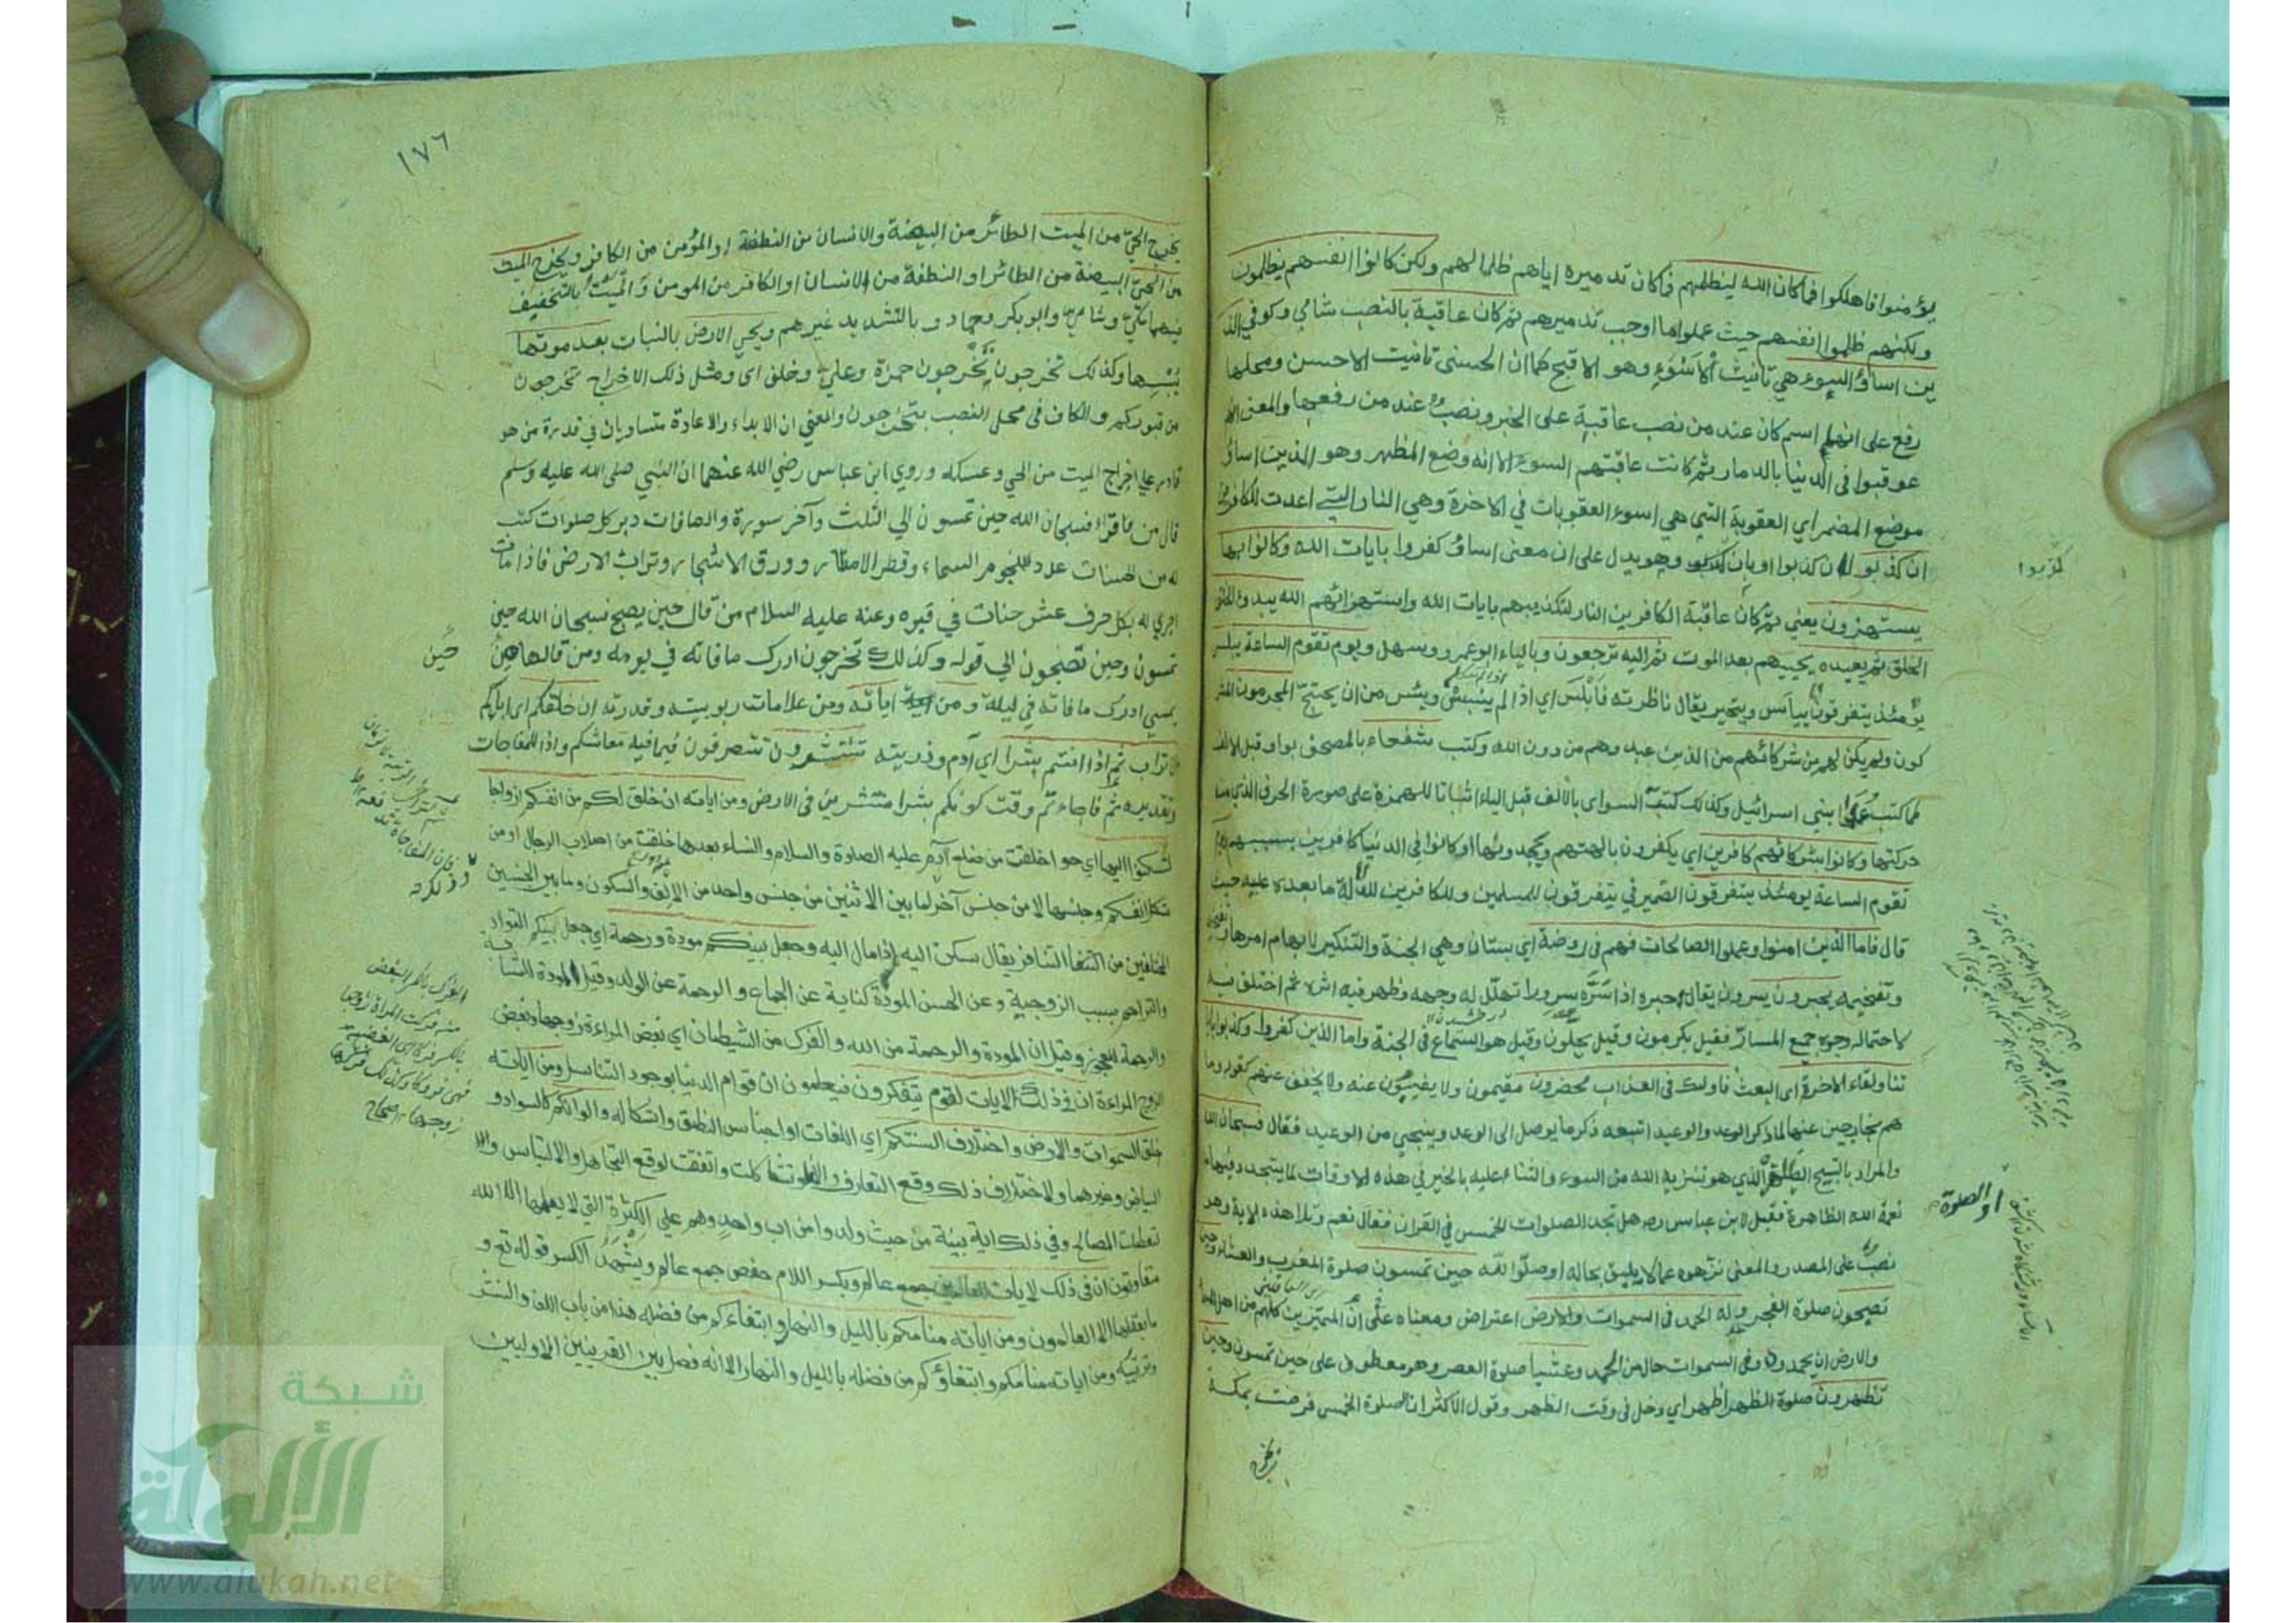 يؤمنوا فاهلكوا فما كان الله ليظلمهم فما كان تدميره اياهم ظلما لهم ولكن كانوا انفسهم يظلمون
ولكنهم ظلموا انفسهم حيث عملوا ما اوجب تدميرهم ثم كان عاقبة بالنصب شامي وكوفي الذ
ين اساؤ السوء هي تانيث الاسوء وهو الاقبح كما ان الحسنى تانيث الاحسن ومحلها
رفع على انها اسم كان عند من نصب عاقبة على الخبر ونصب عند من رفعها والمعنى انهم
عوقبوا فى الدنيا بالدمار ثم كانت عاقبتهم السوء الا انه وضع المظهر وهو الذين اساؤ
موضع المضمر اي العقوبة التي هي اسوء العقوبات في الاخرة وهي النار التي اعدت للكافرين
ان كذبو لان كذبوا او بان وهو يدل على ان معنى اساؤ كفروا بايات الله وكانوا بها
كذبوا
يستهزون يعني ثم كان عاقبة الكافرين النار لتكذيبهم بايات الله واستهزائهم الله يبدؤ الخلق
الخلق ثم يعيده يحييهم بعد الموت ثم اليه ترجعون وبالياء ابو عمرو وسهل ويوم تقوم الساعة يبلس
يومئذ يتفرقون ييأس ويتحير يقال ناظرته فابلس اي اذا لم ينبس ويئس من ان يحتج المجرمون المشر
كون ولم يكن لهم من شركائهم من الذين عبدوهم من دون الله وكتب شفعاء بالمصحف بواو قبل الالف
كما كتب علماء بني اسرائيل وكذلك كتبت السواى بالالف قبل الياء اثباتا للهمزة على صورة الحرف الذي منه
حركتها وكانوا بشركائهم كافرين اي يكفرون بالهتهم ويجحدونها او كانوا في الدنيا كافرين بسببهم ويوم
تقوم الساعة يومئذ يتفرقون الضمير في يتفرقون للمسلمين وللكافرين لدلالة ما بعده عليه حيث
قال فاما الذين امنوا وعملوا الصالحات فهم فى روضة اي بستان وهي الجنة والتنكير لابهام امرها
وتفخيمه يحبرون يسرون يقال حبره اذا سره سرورا تهلل له وجهه وظهر فيه اثره ثم اختلف فيه
لاحتماله وجوه جميع المسار فقيل يكرمون وقيل يحلون وقيل هو السماع فى الجنة واما الذين كفروا وكذبوا باياتنا
تنا ولقاء الاخرة اى البعث فاولئك فى العذاب محضرون مقيمون ولا يغيبون عنه ولا يخفف عنهم كقوله وما
هم بخارجين عنها لما ذكر الوعد والوعيد اتبعه ذكر ما يوصل الى الوعد وينجي من الوعيد فقال فسبحان الله
والمراد بالتسبيح الذي هو تنزيه الله من السوء والثناء عليه بالخير في هذه الاوقات لما يتجدد فيها من
نعمة الله الظاهرة فقيل لابن عباس رض هل تجد الصلوات الخمس في القران فقال نعم وتلا هذه الاية وهو
او الصلوة
نصب على المصدر والمعنى نزهوه عما لا يليق به او صلوا لله حين تمسون صلوة المغرب والعشاء وحين
تصبحون صلوة الفجر وله الحمد فى السموات والارض اعتراض ومعناه ان على المميزين كلهم من اهل السموات
والارض ان يحمدوه وفى السموات حال من الحمد وعشيا صلوة العصر وهو معطوف على حين تمسون وحين
تظهرون صلوة الظهر اظهر اي دخل فى وقت الظهر وقول الاكثر ان الصلوة الخمس فرضت بمكة
يخرج
١٧٦
يخرج الحي من الميت الطائر من البيضة والانسان من النطفة او المؤمن من الكافر ويخرج الميت
من الحي البيضة من الطائر او النطفة من الانسان او الكافر من المومن والميت بالتخفيف
فيهما مكي وشامي وابو بكر وحماد وبالتشديد غيرهم ويحيي الارض بالنبات بعد موتها
يبسها وكذلك تخرجون تخرجون حمزة وعلي وخلف اى ومثل ذلك الاخراج تخرجون
من قبوركم والكاف فى محل النصب بتخرجون والمعني ان الابداء والاعادة متساويان في قدرة من هو
قادر على اخراج الميت من الحي وعكسه وروي ابن عباس رضي الله عنهما ان النبي صلى الله عليه وسلم
قال من قرا فسبحان الله حين تمسون الي الثلث وآخر سورة والصافات دبر كل صلوات كتب
له من الحسنات عدد نجوم السماء وقطر الامطار وورق الاشجار وتراب الارض فاذا مات
اجري له بكل حرف عشر حسنات في قبره وعنه عليه السلام من قال حين يصبح فسبحان الله حين
تمسون وحين تصبحون الي قوله وكذلك تخرجون ادرك ما فاته في يومه ومن قالها حين
حين
يمسي ادرك ما فاته في ليلة ومن اياته ومن علامات ربوبيته وقدرته ان خلقكم اى اباكم
من تراب ثم اذا انتم بشرا اي آدم وذريته تنتشرون تتصرفون فيما فيه معاشكم واذا للمفاجات
وتقديره ثم فاجاءتم وقت كونكم بشرا منتشرين فى الارض ومن اياته ان خلق لكم من انفسكم ازواجا
لتسكنوا اليها اي حوا خلقت من ضلع آدم عليه الصلوة والسلام والنساء بعدها خلقت من اصلاب الرجال او من
شكل انفسكم وجنسها لا من جنس آخر لما بين الاثنين من جنس واحد من الالف والسكون وما بين الجنسين
المختلفين من التنافر يقال سكن اليه اذا مال اليه وجعل بينكم مودة ورحمة اي جعل بينكم التواد
والتراحم بسبب الزوجية وعن الحسن المودة كناية عن الجماع والرحمة عن الولد وقيل المودة للشابة
والرحمة للعجوز وقيل ان المودة والرحمة من الله والفرك من الشيطان اي بغض المراءة زوجها وبغض
الزوج المراءة ان فى ذلك لايات لقوم يتفكرون فيعلمون ان قوام الدنيا بوجود التناسل ومن اياته
خلق السموات والارض واختلاف السنتكم اي اللغات او اجناس النطق واشكاله والوانكم كالسواد و
البياض وغيرهما ولاختلاف ذلك وقع التعارف والا فلو تشاكلت واتفقت لوقع التجاهل والالتباس ولا
لتعطلت المصالح وفي ذلك اية بينة من حيث ولدوا من اب واحد وهم علي الكثرة التي لا يعلمها الا الله
متفاوتون ان فى ذلك لايات للعالمين جمع عالم وبكسر اللام حفص جمع عالم ويشهد الكسر قوله تع و
ما يعقلها الا العالمون ومن اياته منامكم بالليل والنهار وابتغاءكم من فضله هذا من باب اللف والنشر
وترتيبه ومن اياته منامكم وابتغاؤكم من فضله بالليل والنهار الا انه فصل بين القرينين الاوليين
الفرك بالكسر البغض
منه فركت المراة زوجها
بالكسر فركا اى ابغضته
فهى فروك وفارك وكذلك فركها
زوجها صحاح
شبكة
الألوكة
www.alukah.net